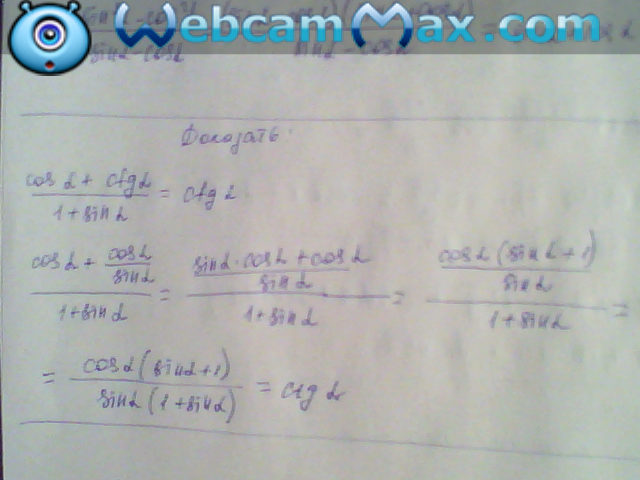 WebcamMax.com
Доказать:
(cos α + ctg α)/(1 + sin α) = ctg α
(cos α + cos α/sin α)/(1 + sin α) = ((sin α · cos α + cos α)/sin α)/(1 + sin α) = (cos α (sin α + 1)/sin α)/(1 + sin α) =
= cos α (sin α + 1)/(sin α (1 + sin α)) = ctg α